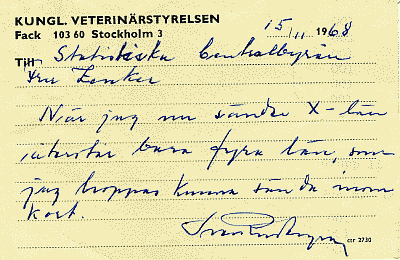 KUNGL. VETERINÄRSTYRELSEN
Fack 103 60 Stockholm 3
15/11 1968
Till Statistiska Centralbyrån
Fru Zenker
När jag nu sänder X-län
återstår bara fyra län, som
jag hoppas kunna sända inom
kort.
ctr 2730